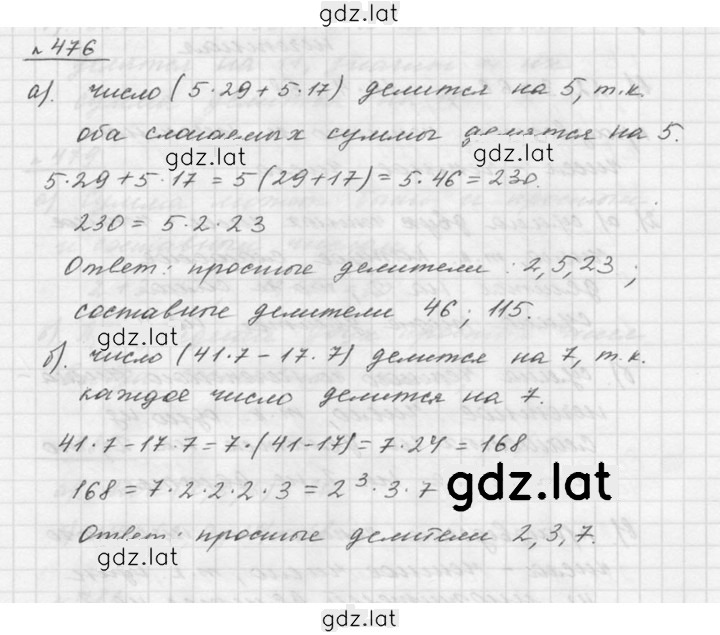 gdz.lat
№ 476
а). число (5·29 + 5·17) делится на 5, т.к.
оба слагаемых суммы делятся на 5.
gdz.lat gdz.lat
5·29 + 5·17 = 5(29+17) = 5·46 = 230.
230 = 5·2·23
Ответ: простые делители : 2, 5, 23 ;
составные делители 46 ; 115.
gdz.lat
б). число (41·7 - 17·7) делится на 7, т.к.
каждое число делится на 7.
41·7 - 17·7 = 7·(41-17) = 7·24 = 168
168 = 7·2·2·2·3 = 2³·3·7
gdz.lat
Ответ: простые делители 2, 3, 7.
gdz.lat
gdz.lat